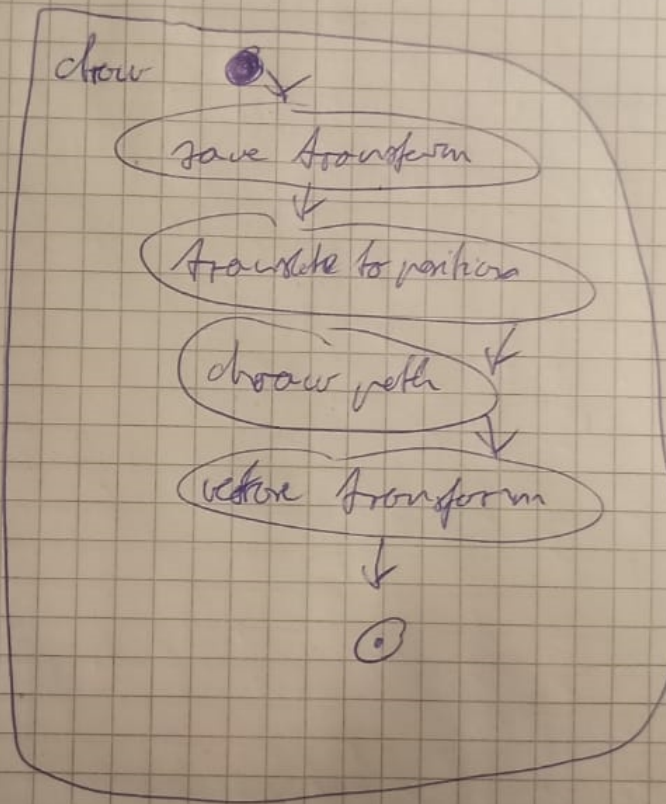 draw
save transform
translate to position
draw path
restore transform